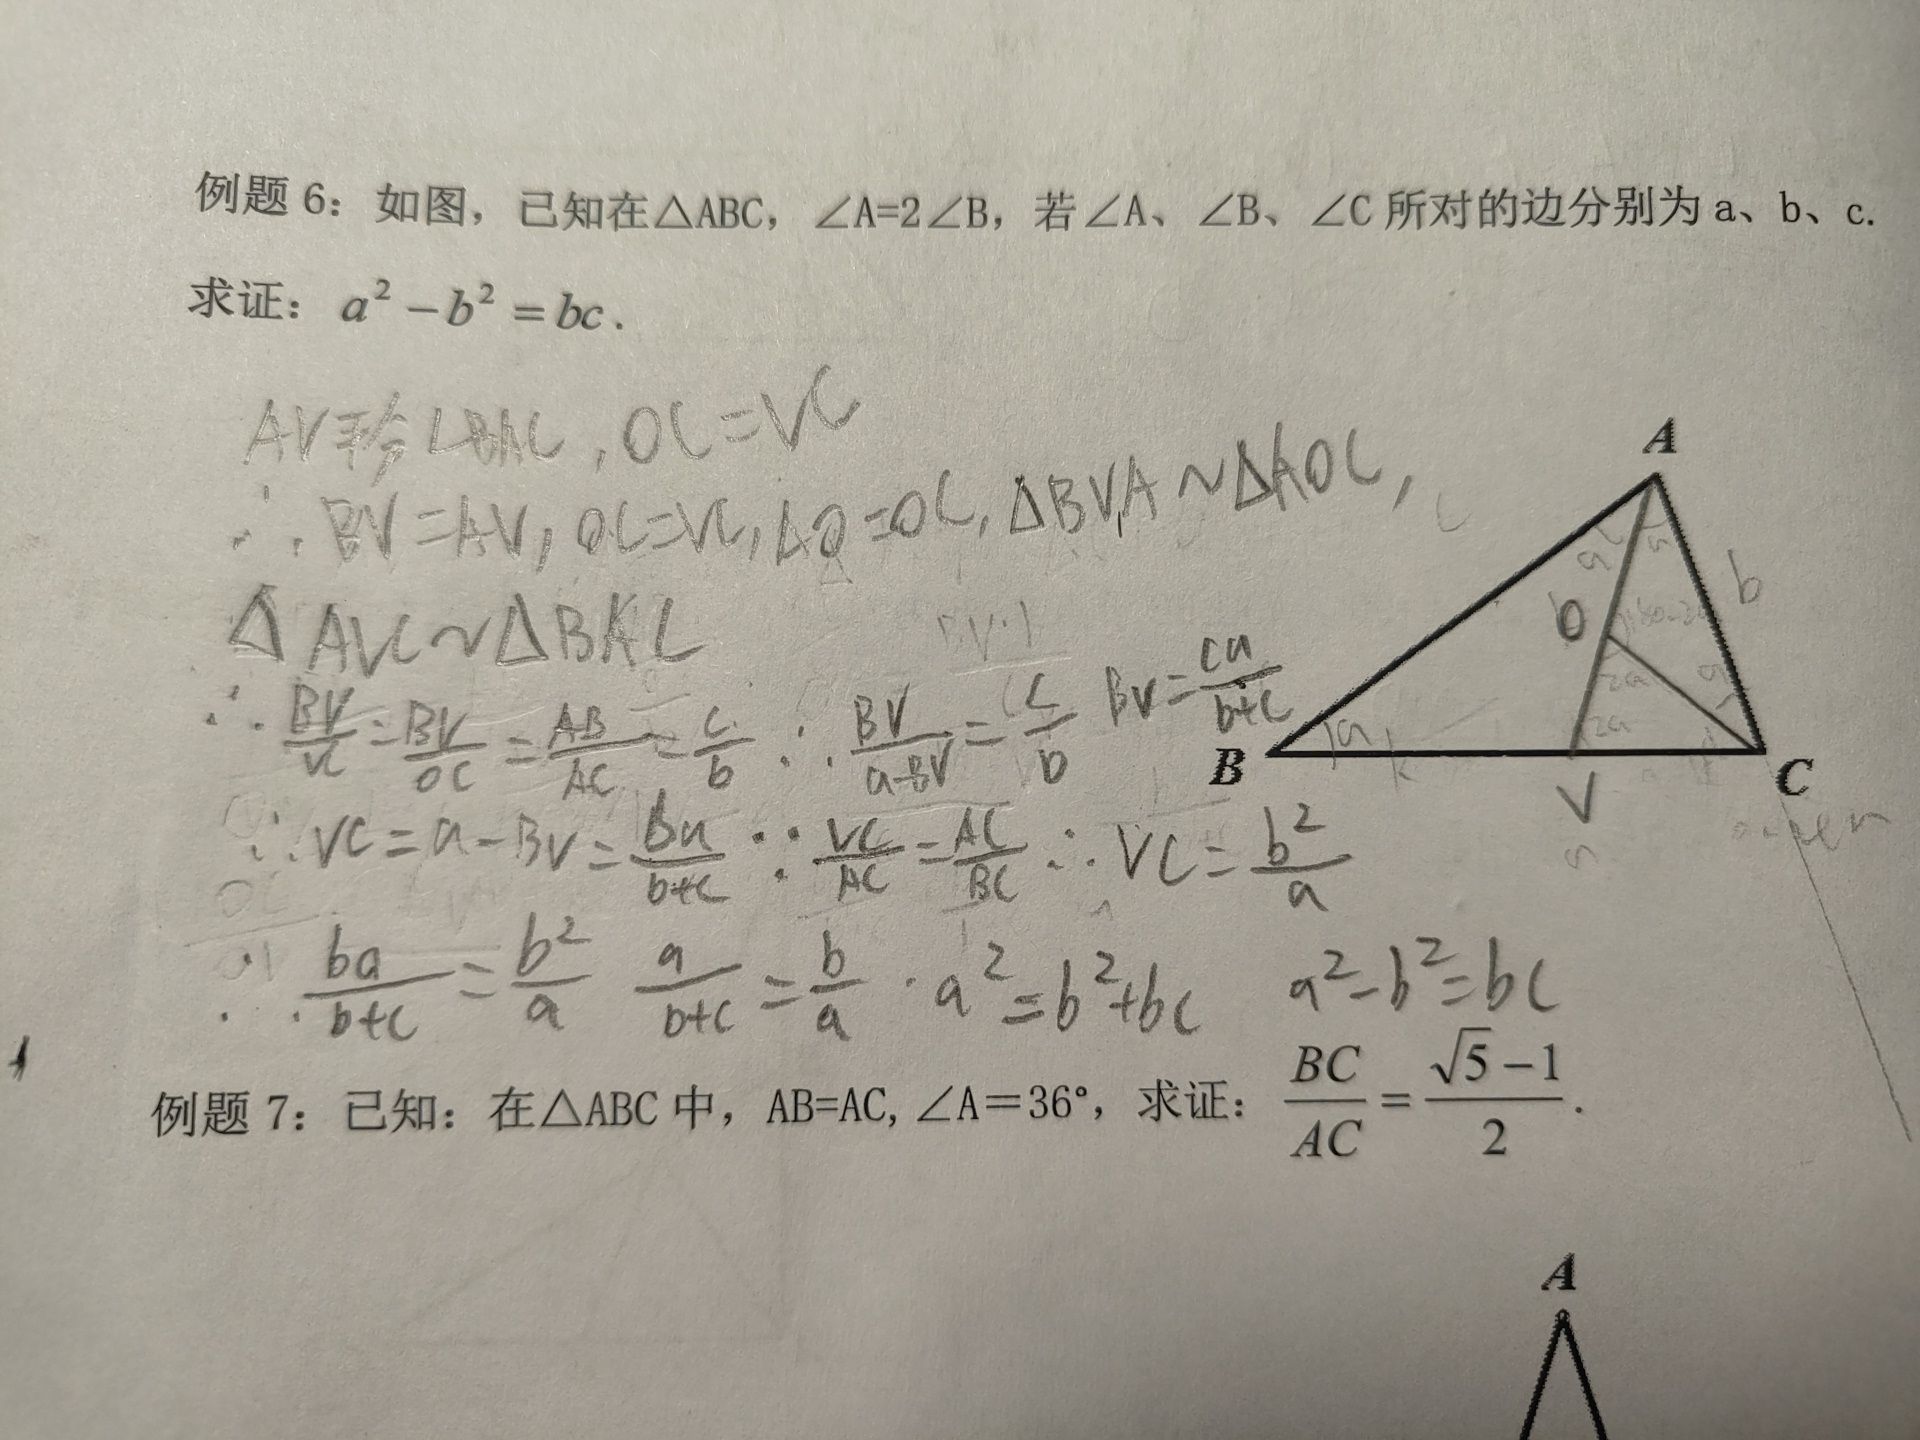 例题6：如图，已知在△ABC，∠A=2∠B，若∠A、∠B、∠C所对的边分别为a、b、c.
求证：a²－b²＝bc.
AV平分∠BAC，OC=VC
∴BV=AV，OC=VC，AO=OC，△BVA∼△AOC，
△AVC∼△BAC
∴BV/VC=BV/OC=AB/AC=c/b ∴BV/(a-BV)=c/b BV=ca/(b+c)
∴VC=a-BV=ba/(b+c) ∵VC/AC=AC/BC ∴VC=b²/a
∴ba/(b+c)=b²/a a/(b+c)=b/a · a²=b²+bc a²-b²=bc
A
b
O
a
a
2a
2a
a
B
V
C
例题7：已知：在△ABC中，AB=AC,∠A＝36°，求证：BC/AC=(√5－1)/2.
A